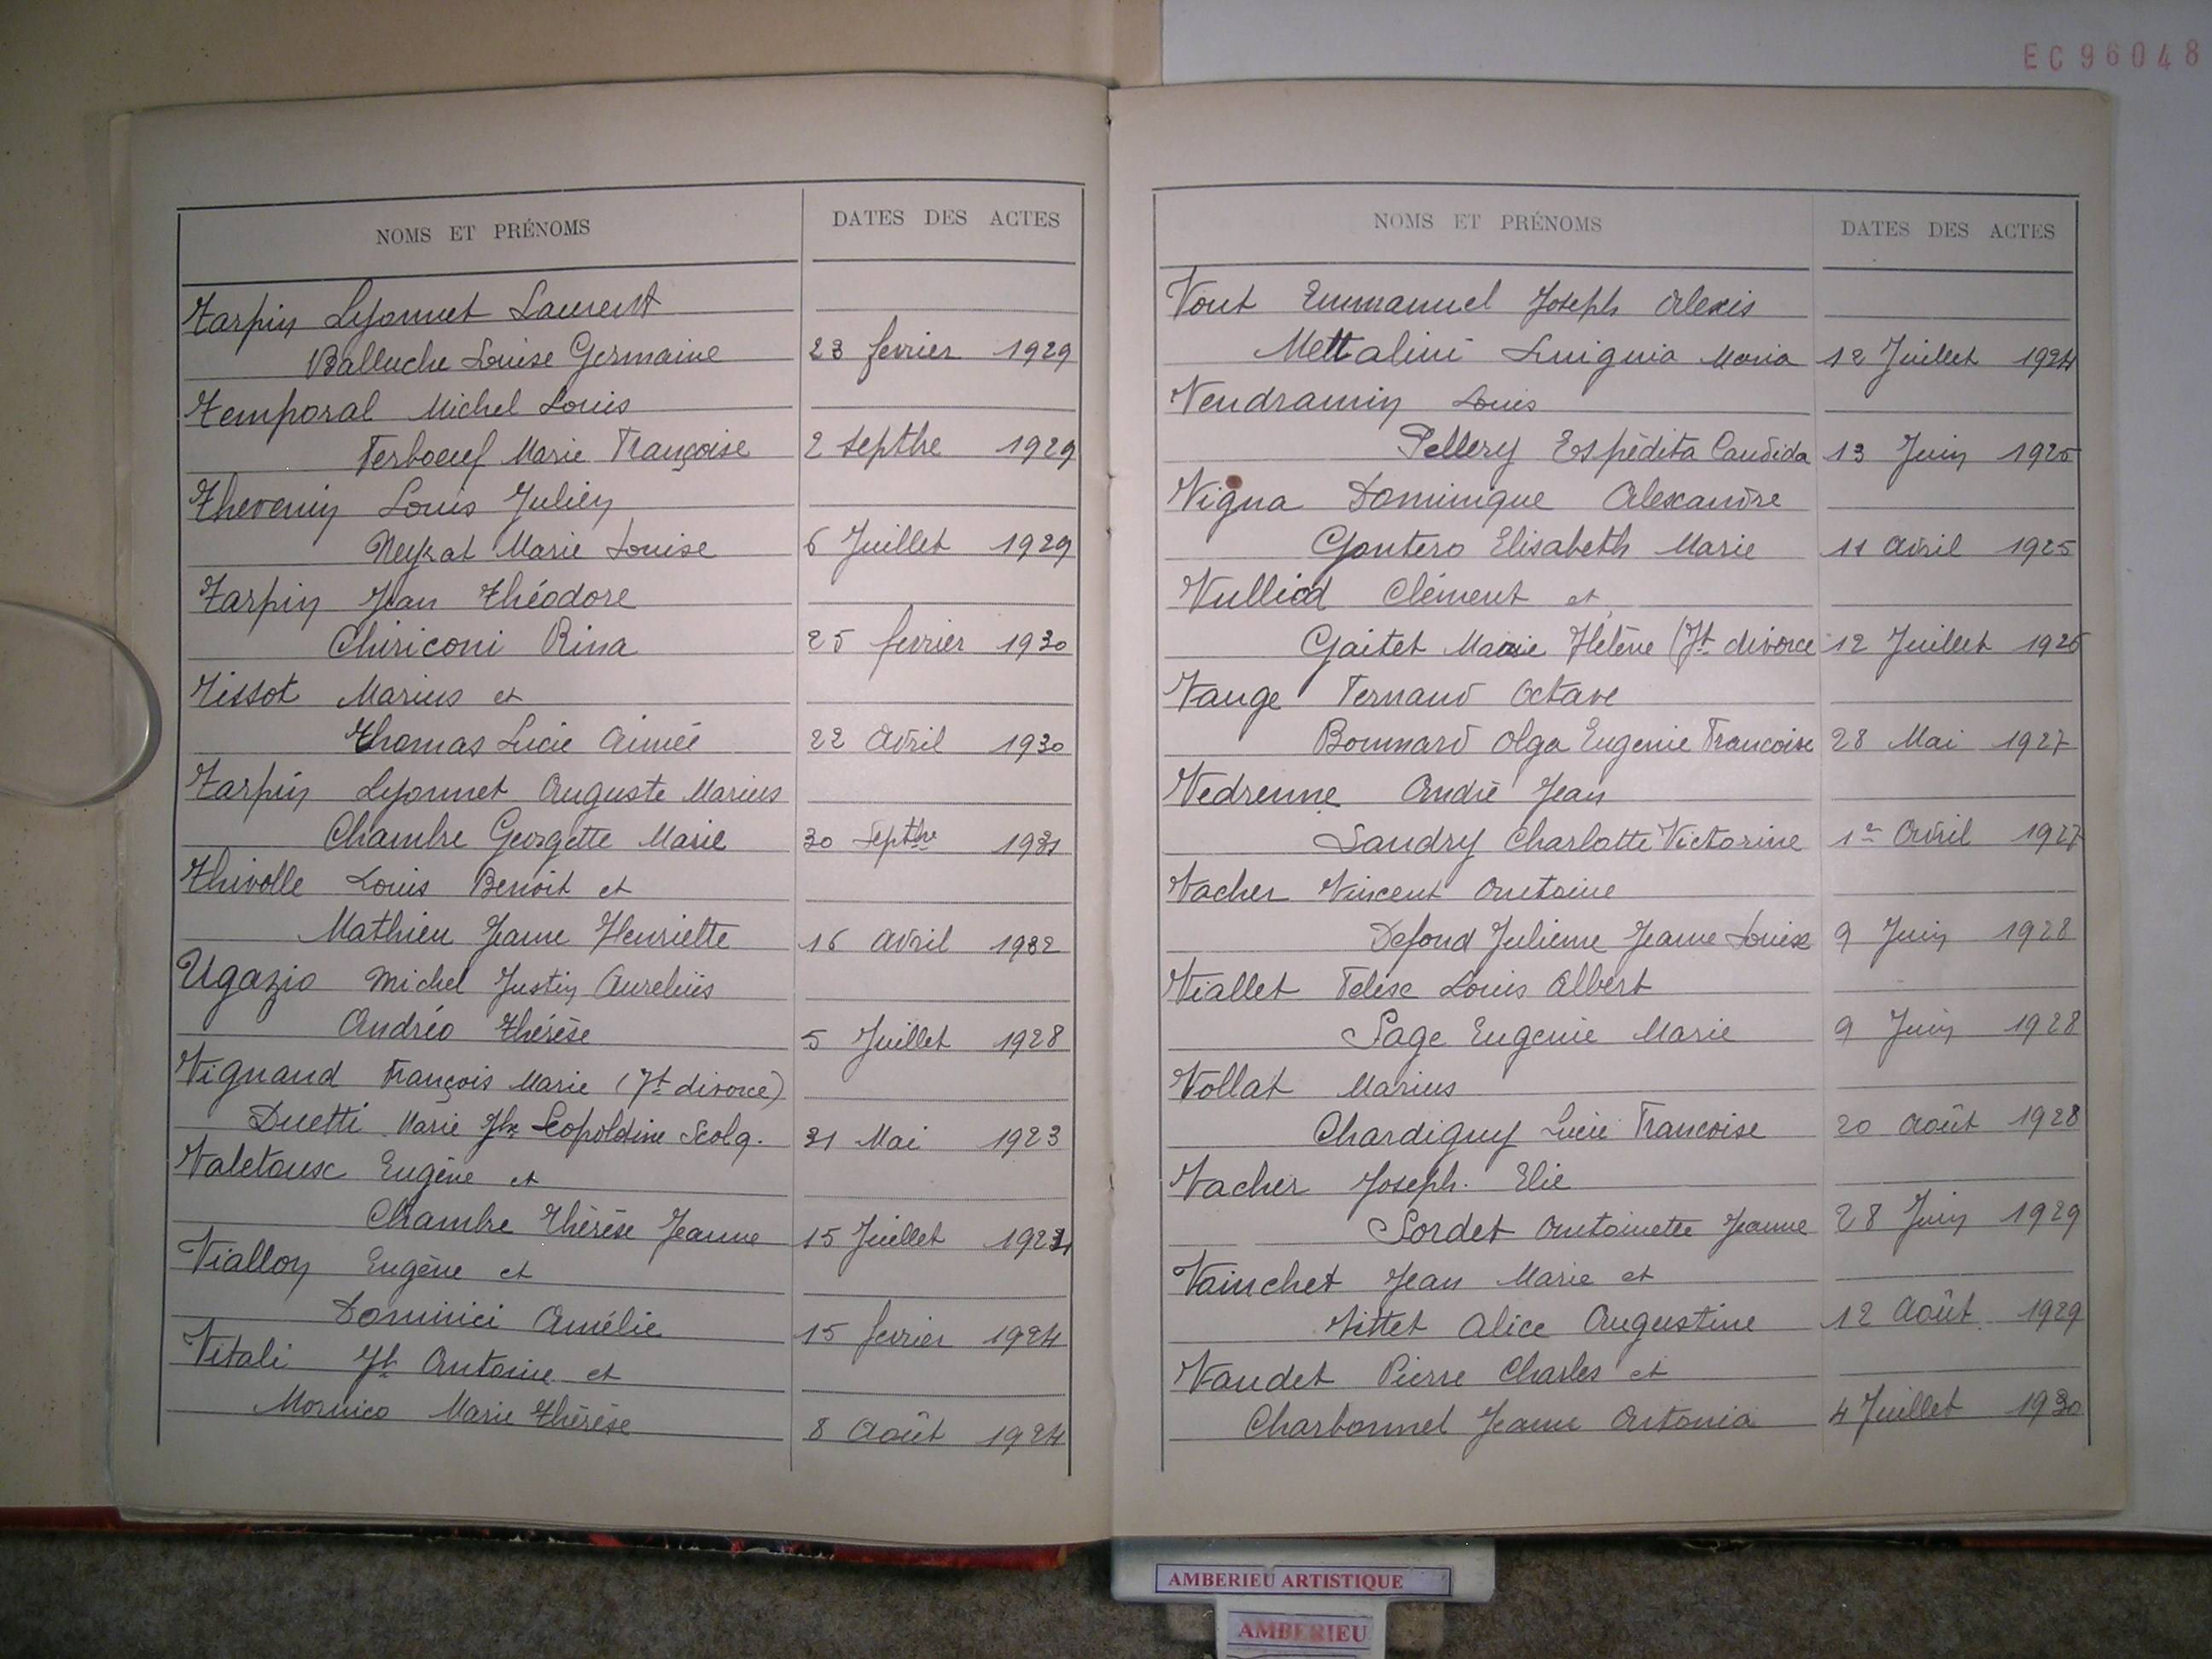 EC96048
NOMS ET PRÉNOMS DATES DES ACTES
Tarpin Lyonnet Laurent
Balluche Louise Germaine 23 fevrier 1929
Temporal Michel Louis
Ferboeuf Marie Françoise 2 septbre 1929
Thevenin Louis Julien
Neyrat Marie Louise 6 Juillet 1929
Tarpin Jean Théodore
Chiriconi Rina 25 fevrier 1930
Tissot Marius et
Thomas Lucie Aimée 22 Avril 1930
Tarpin Lyonnet Auguste Marius
Chambre Georgette Marie 30 Septbre 1931
Thivolle Louis Benoit et
Mathieu Jeanne Henriette 16 Avril 1932
Ugazio Michel Justin Aurelius
Andréo Thérèse 5 Juillet 1928
Vignand François Marie (Jt divorce)
Duetti Marie Leopoldine Scolq. 31 Mai 1923
Valetoux Eugène et
Chambre Thérèse Jeanne 15 Juillet
Viallon Eugène et
Dominici Amélie 15 fevrier 1924
Vitali Jh Antoine et
Mornico Marie Thérèse 8 Août 1924
NOMS ET PRÉNOMS DATES DES ACTES
Vout Emmanuel Joseph Alexis
Mettalini Luiginia Maria 12 Juillet 1924
Vendramin Louis
Pellery Espédita Candida 13 Juin 1925
Vigna Dominique Alexandre
Gontero Elisabeth Marie 11 Avril 1925
Vulliod Clément et
Gaitet Marie Hélène (Jt divorce 12 Juillet 1926
Vauge Fernand Octave
Bonnard Olga Eugenie Francoise 28 Mai 1927
Vedrenne André Jean
Landry Charlotte Victorine 1er Avril 1927
Vacher Vincent Antoine
Defond Julienne Jeanne Louise 9 Juin 1928
Viallet Félix Louis Albert
Page Eugenie Marie 9 Juin 1928
Vollat Marius
Chardiguy Lucie Francoise 20 Août 1928
Vacher Joseph. Elie
Sordet Antoinette Jeanne 28 Juin 1929
Vainchet Jean Marie et
Tittet Alice Augustine 12 Août 1929
Vaudet Pierre Charles et
Charbonnel Jeanne Antonia 4 Juillet 1930
AMBERIEU ARTISTIQUE
AMBERIEU